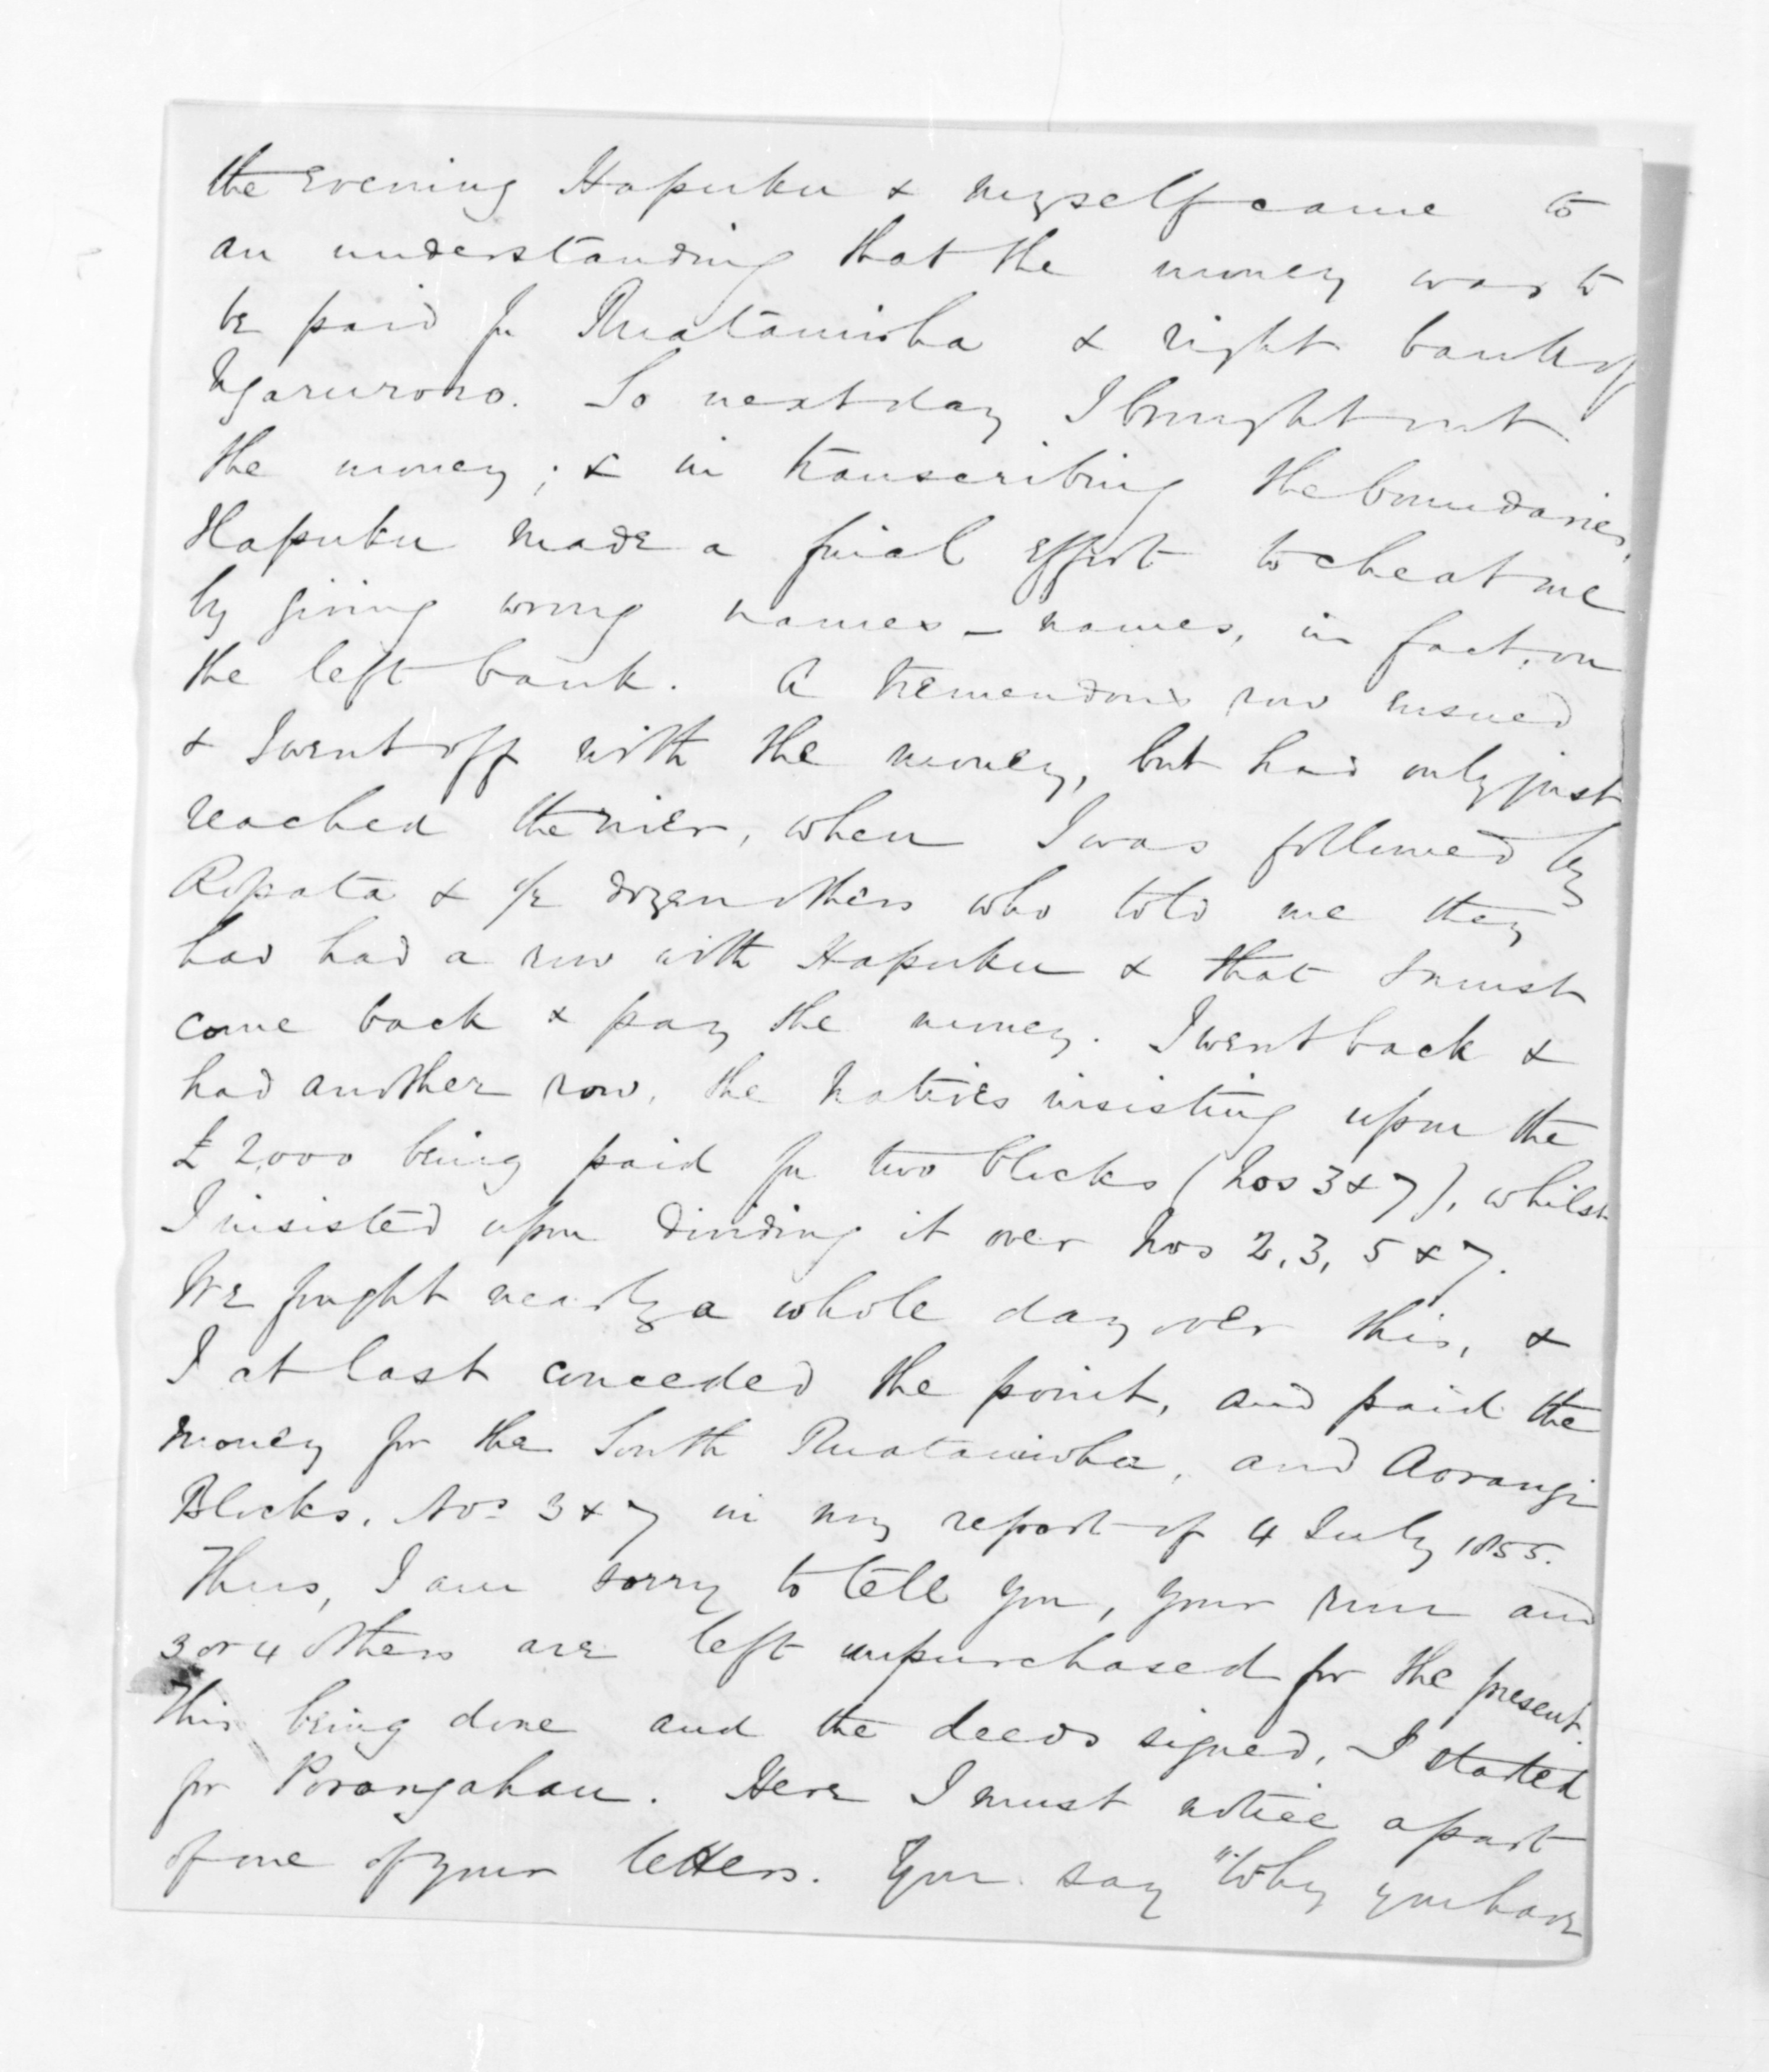 the Evening Hapuku & myself came to
an understanding that the money was to
be paid for Ruataniwha & right bank of
Ngaruroro. So next day I brought out
the money; & in transcribing the boundaries,
Hapuku made a final effort to cheat me
by giving wrong names – names, in fact, on
the left bank. A tremendous row ensued
& I went off with the money, but had only just
reached the river, when I was followed by
Ropata & 1/2 dozen others who told me they
had had a row with Hapuku & that I must
come back & pay the money. I went back &
had another row, the natives insisting upon the
£2,000 being paid for two blocks (Nos 3 & 7), whilst
I insisted upon dividing it over Nos 2, 3, 5 & 7.
We fought nearly a whole day over this, &
I at last conceded the point, and paid the
money for the South Ruataniwha, and Aorangi
Blocks, Nos 3 & 7 in my report of 4 July 1855.
Thus, I am sorry to tell you, your run and
3 or 4 others are left unpurchased for the present.
This being done and the deeds signed, I started
for Porangahau. Here I must notice a part
of one of your letters. You say "Why you have